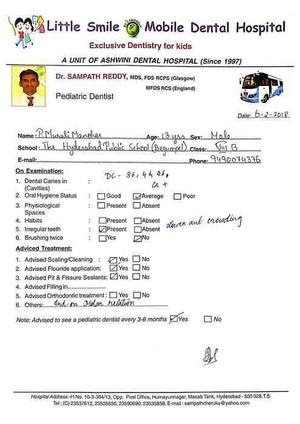 Little Smile Mobile Dental Hospital
Exclusive Dentistry for kids
A UNIT OF ASHWINI DENTAL HOSPITAL (Since 1997)
Dr. SAMPATH REDDY, MDS, FDS RCPS (Glasgow)
MFDS RCS (England)
Pediatric Dentist
Date: 6-2-2018
Name: P. Murali Manohar Age: 13 yrs Sex: Male
School: The Hyderabad Public School (Begumpet) Class: VIII B
E-mail: Phone: 9490074376
On Examination:
1. Dental Caries in (Cavities) : DC -
2. Oral Hygiene Status : Good Average Poor
3. Physiological Spaces : Present Absent
4. Habits : Present Absent
5. Irregular teeth : Present Absent lower ant crowding
6. Brushing twice : Yes No
Adviced Treatment:
1. Advised Scaling/Cleaning : Yes No
2. Advised Flouride application : Yes No
3. Advised Pit & Fissure Sealants : Yes No
4. Advised Filling in
5. Advised Orthodontic treatment : Yes No
6. Others: End-on Molar relation
Note: Advised to see a pediatric dentist every 3-6 months Yes No
Hospital Address :H.No. 10-3-304/13, Opp. Post Office, Humayunnagar, Masab Tank, Hyderabad - 500 028.T.S.
Tel: (C) 23537612, 23535656, 23590690, 23535858, E-mail : sampathcheruku@yahoo.com